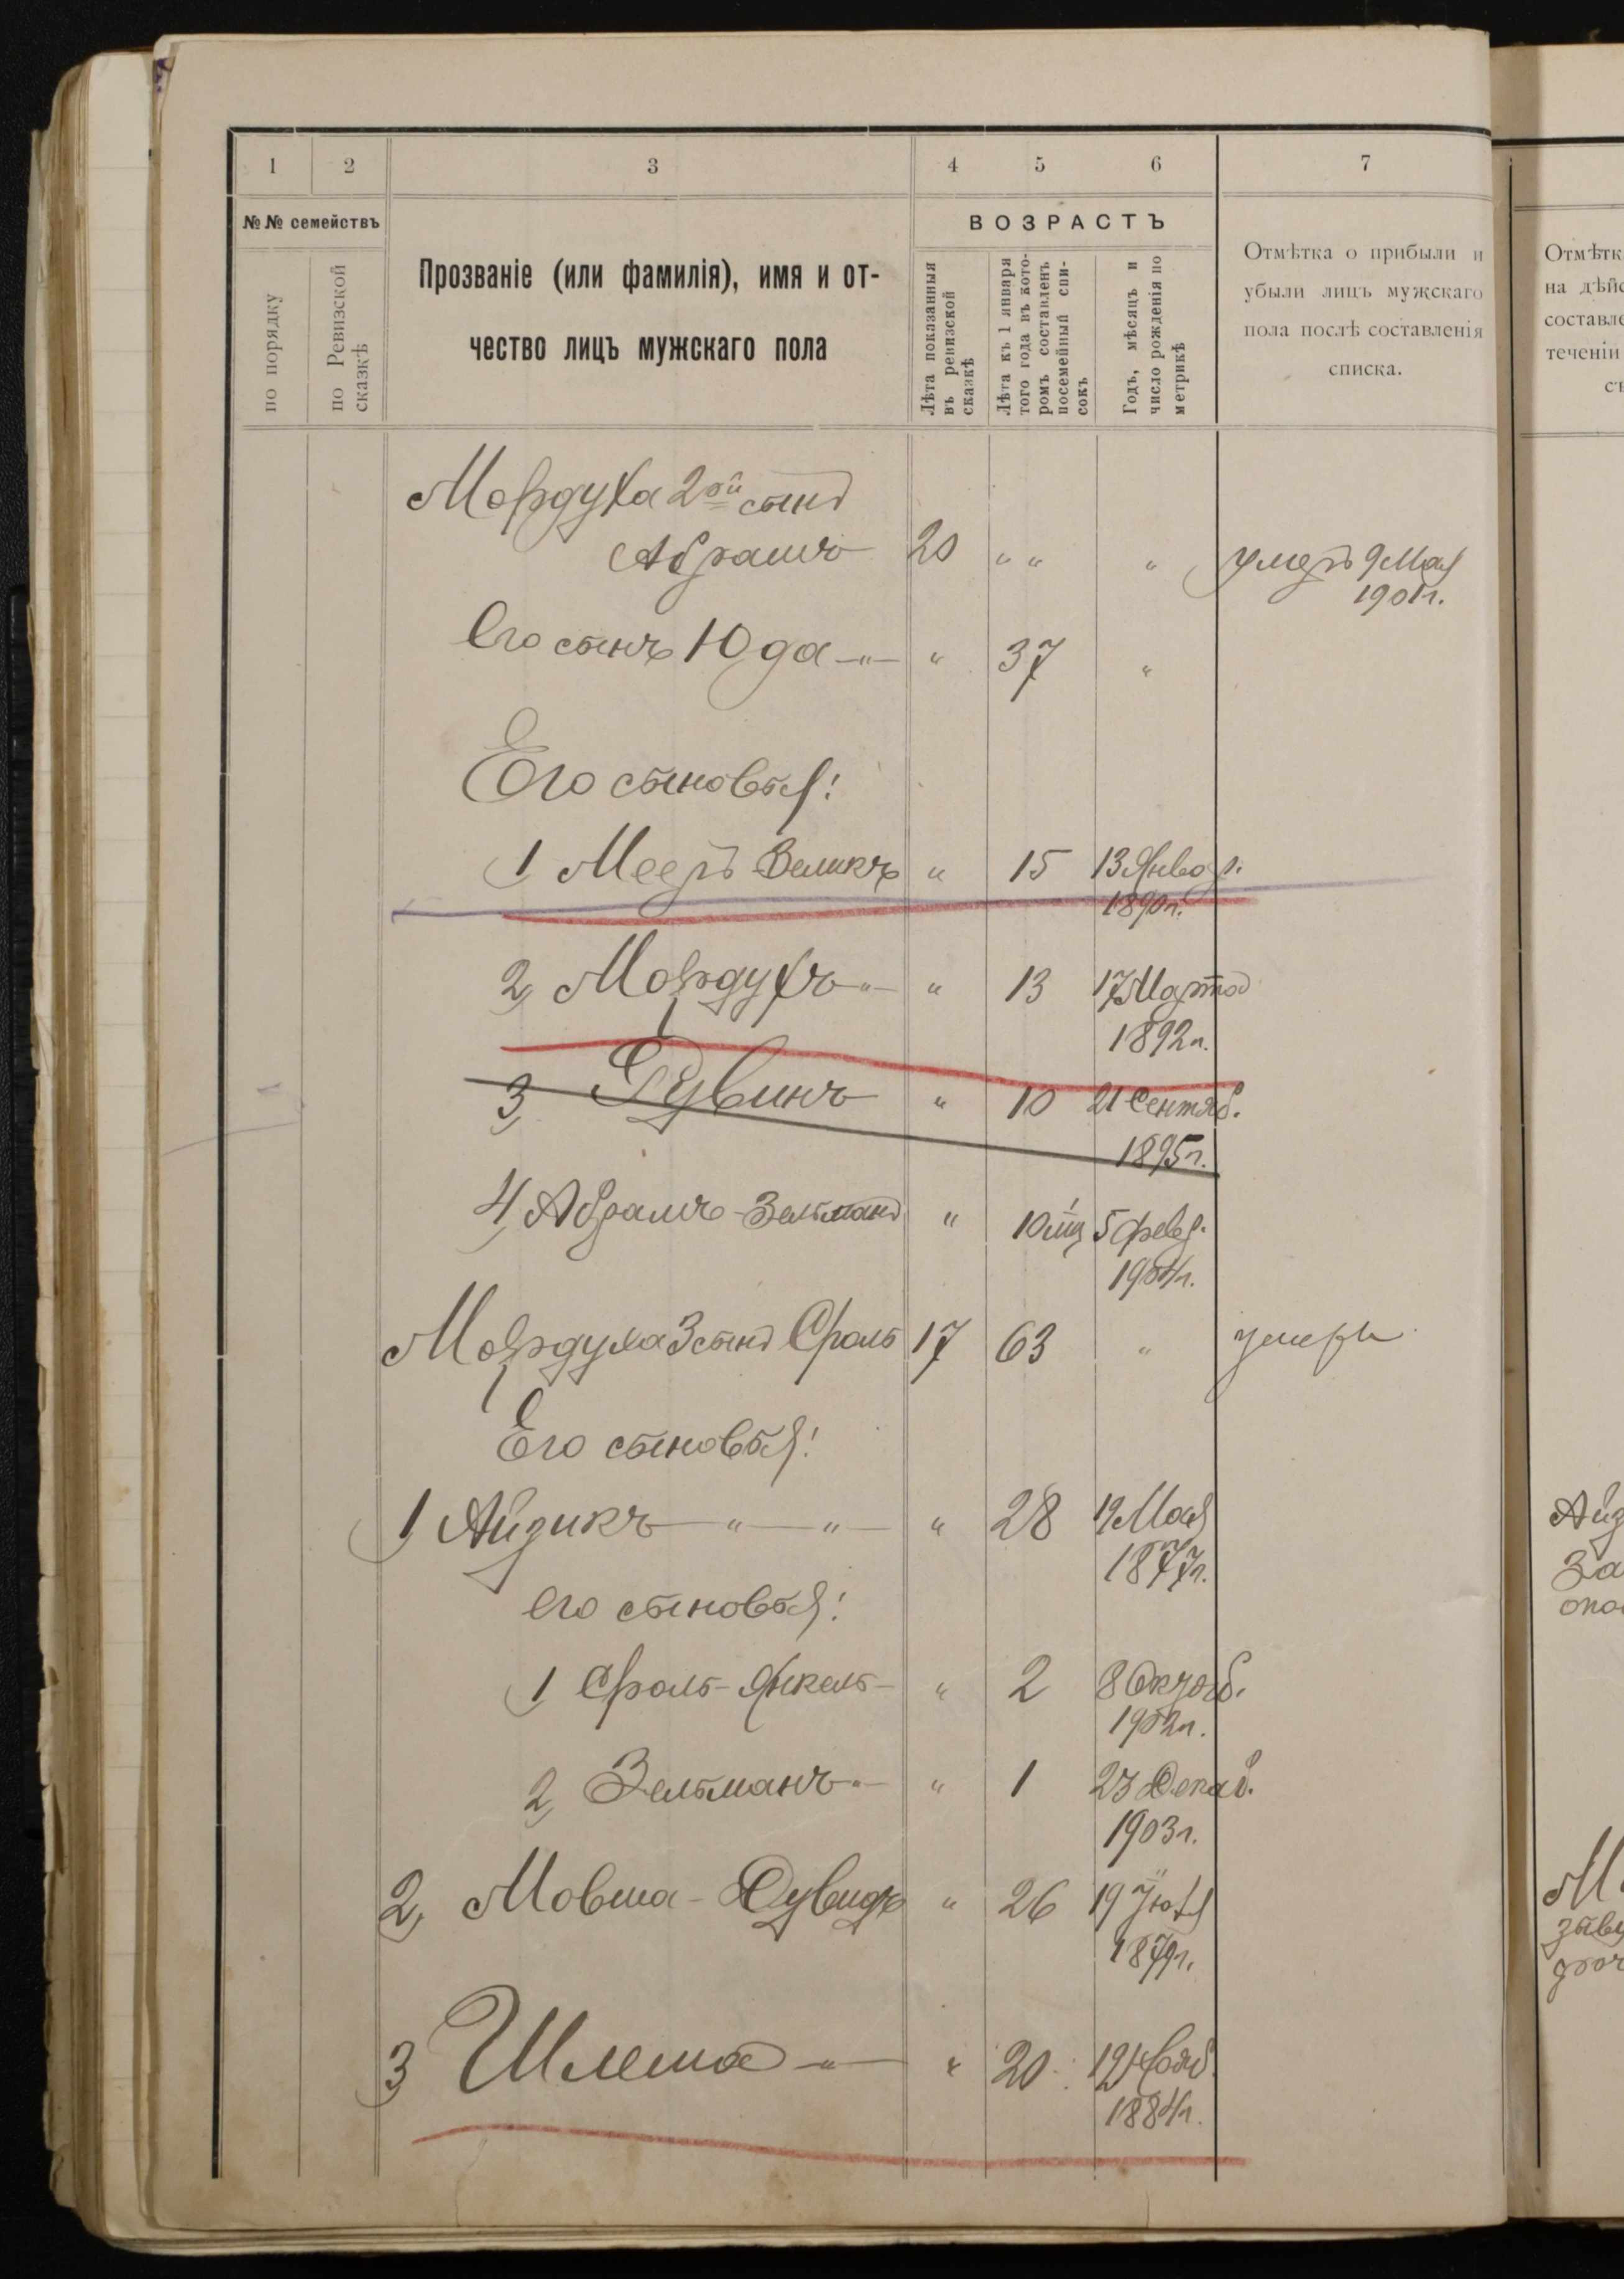 1 2 3 4 5 6 7
№№ семействъ
по порядку
по Ревизской сказкѣ
Прозваніе (или фамилія), имя и от-
чество лицъ мужскаго пола
ВОЗРАСТЪ
Лѣта показанныя
въ ревизской
сказкѣ
Лѣта къ 1 января
того года въ кото-
ромъ составленъ
посемейный спи-
сокъ
Годъ, мѣсяцъ и
число рожденія по
метрикѣ
Отмѣтка о прибыли и
убыли лицъ мужскаго
пола послѣ составленія
списка.
Отмѣтк
на дѣйс
составле
теченіи
Мордуха 2ой сынъ
Абрамъ 20 „ „ „ умеръ 9 Мая
1901 г.
Его сынъ Юда —„— „ 37 „
Его сыновья:
1 Мееръ-Зеликъ „ 15 13 Январ.
1890 г.
2, Мордухъ —„— „ 13 17 Марта
1892 г.
3, Рувинъ „ 10 21 Сентяб.
1895 г.
4, Абрамъ-Зельманъ „ 10 мц 5 февр.
1904 г.
Мордуха 3 сынъ Сроль 17 63 „ умеръ
Его сыновья:
1, Айзикъ —„—„— „ 28 19 Мая
1877 г.
Его сыновья:
1, Сроль-Янкель — „ 2 8 Октяб.
1902 г.
2, Зельманъ —„— „ 1 23 Декаб.
1903 г.
2, Мовша-Дувидъ „ 26 19
1879 г.
3, Шлема —„— „ 20 12 Нояб.
1884 г.
Айз
За
М